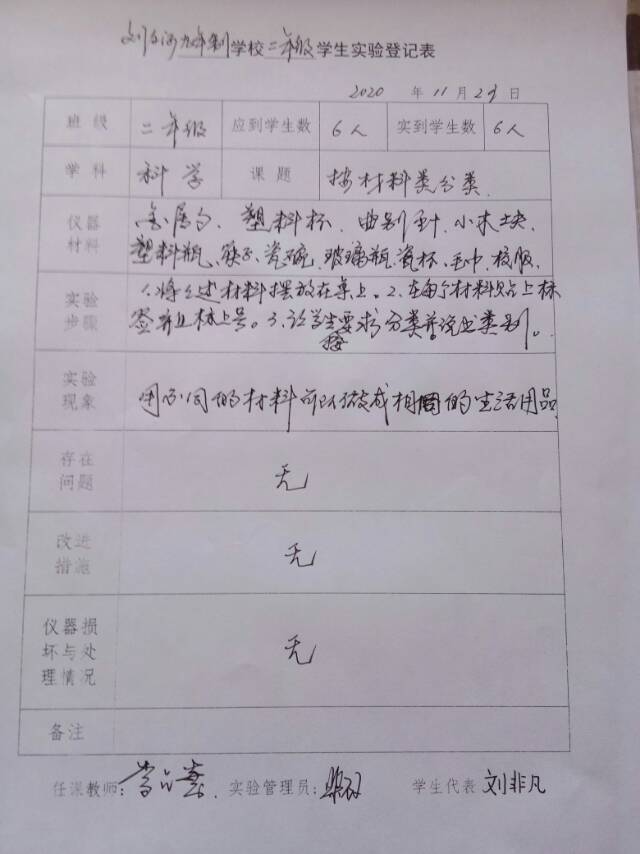 九年制学校二年级学生实验登记表
2020 年 11 月 29 日
班级 二年级 应到学生数 6人 实到学生数 6人
学科 科学 课题 按材料类分类
仪器材料 金属勺、塑料杯、曲别针、小木块、
塑料瓶、筷子、瓷碗、玻璃瓶、瓷杯、毛巾、校服、
实验步骤 1、将上述材料摆放在桌上。2、在每个材料贴上标
签并且标上号。3、让学生按要求分类并说出类别。
实验现象 用不同的材料可以做成相同的生活用品
存在问题 无
改进措施 无
仪器损坏与处理情况 无
备注
任课教师: 实验管理员: 学生代表 刘非凡